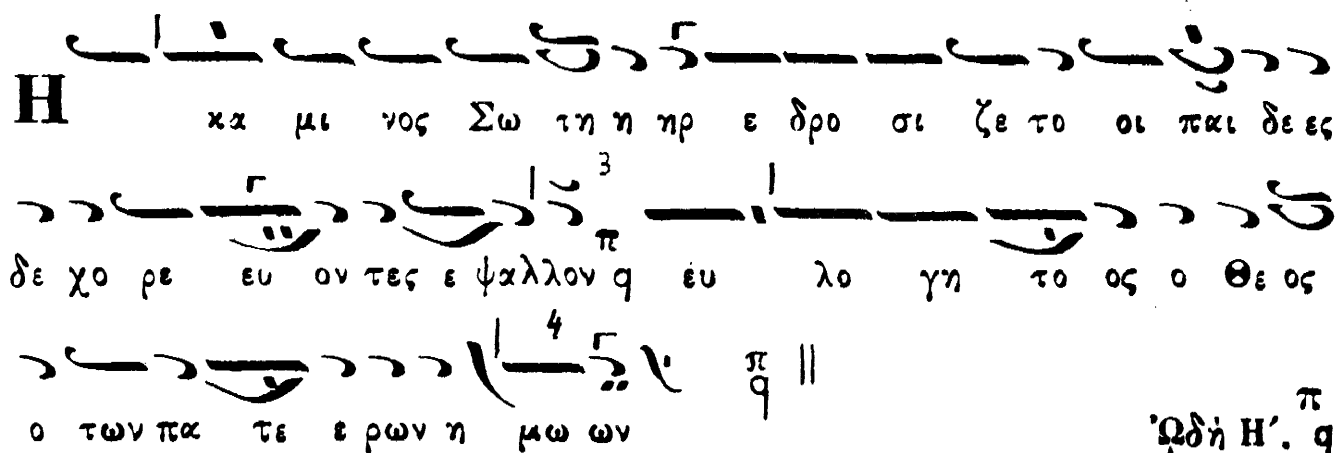 Η κα μι νος Σω τη η ηρ ε δρο σι ζε το οι παι δε ες
δε χο ρε ευ ον τες ε ψαλλον π q ευ λο γη το ος ο Θε ος
ο των πα τε ε ρων η μω ων π q
Ὠδὴ Η΄. π q